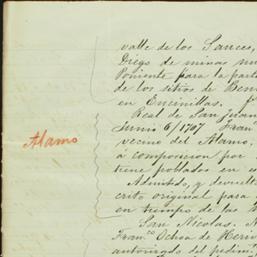 valle de los Sauces,
Diego de minas nu
Poniente para la parte
de los sitios de Ben
en Encinillas.
Real de San Juan
Junio 6/1707 Fran
Alamo
vecino del Alamo,
a composicion por
tiene poblados en e
Admitido, y devuelto
crito original para
en tiempo de las
San Nicolas.
Franco Ochoa de Herr
autorizado del pedim